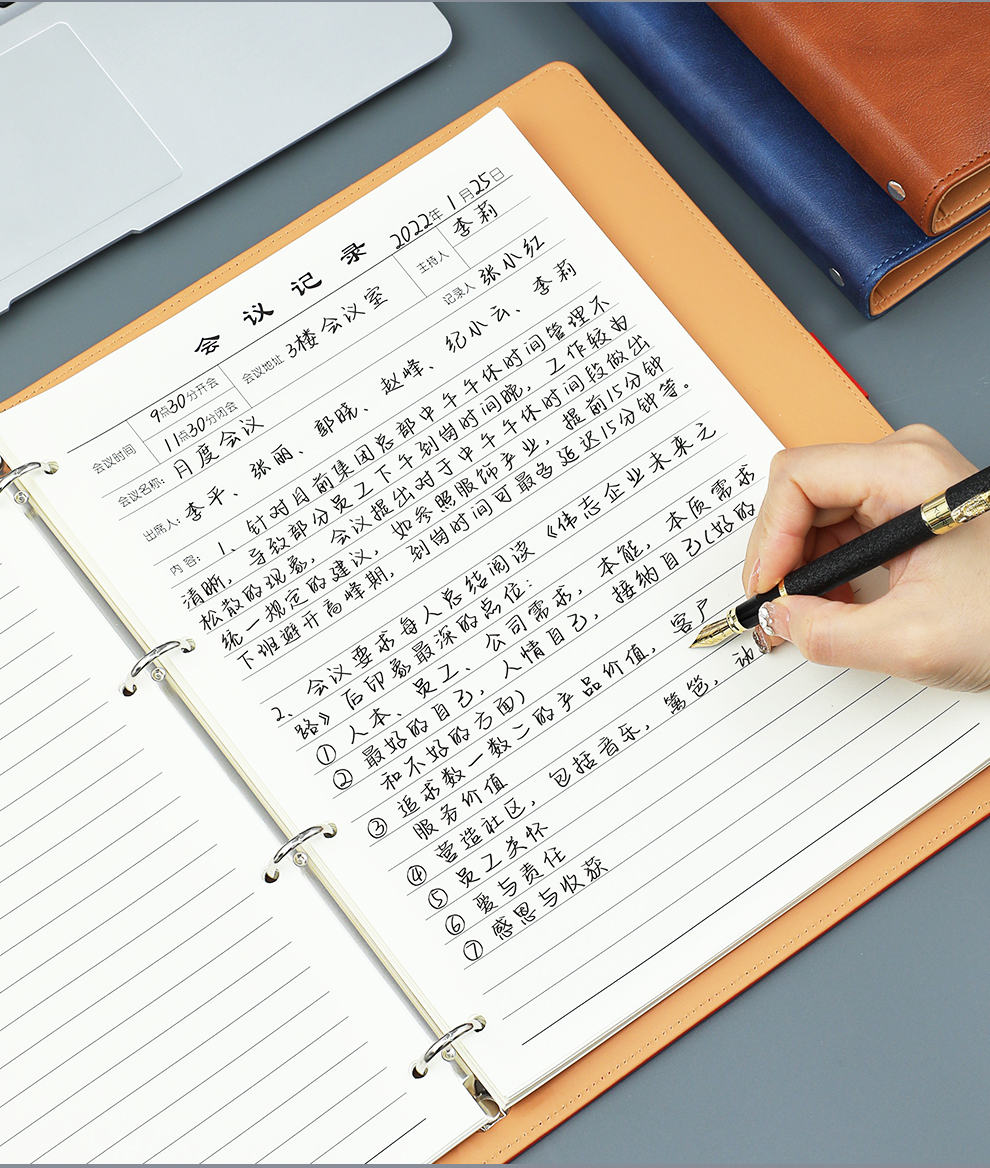 会议记录
2022年1月25日
会议时间 9点30分开会 11点30分闭会 会议地址 3楼会议室 主持人 李莉
会议名称: 月度会议 记录人 张小红
出席人: 李平、张丽、郭晓、赵峰、纪小云、李莉
内容: 1、针对目前集团总部中午午休时间管理不
清晰,导致部分员工下午到岗时间晚,工作较为
松散的现象,会议提出对于中午午休时间段做出
统一规定的建议,如参照服饰产业,提前15分钟
下班避开高峰期,到岗时间可最多延迟15分钟等。
2、会议要求每人总结阅读《伟志企业未来之
路》后印象最深的点位:
① 人本、员工、公司需求,本能,本质需求
② 最好的自己,人情自己,接纳自己(好的
和不好的方面)
③ 追求数一数二的产品价值,客户
服务价值
④ 营造社区,包括音乐,篱笆,动
⑤ 员工关怀
⑥ 爱与责任
⑦ 感恩与收获